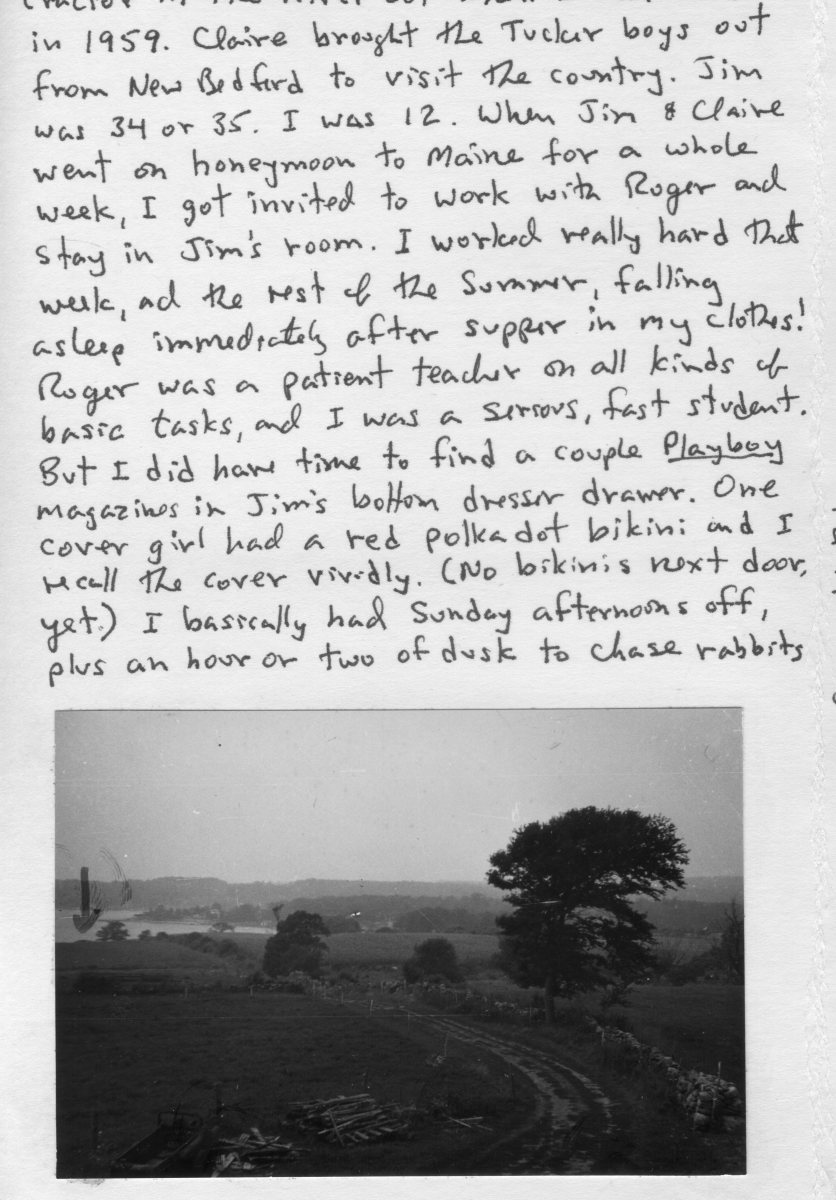 in 1959. Claire brought the Tucker boys out
from New Bedford to visit the country. Jim
was 34 or 35. I was 12. When Jim & Claire
went on honeymoon to Maine for a whole
week, I got invited to work with Roger and
stay in Jim's room. I worked really hard that
week, ad the rest of the Summer, falling
asleep immediately after supper in my clothes!
Roger was a patient teacher on all kinds of
basic tasks, and I was a serious, fast student.
But I did have time to find a couple Playboy
magazines in Jim's bottom dresser drawer. One
cover girl had a red polkadot bikini and I
recall the cover vividly. (No bikinis next door,
yet.) I basically had Sunday afternoons off,
plus an hour or two of dusk to chase rabbits